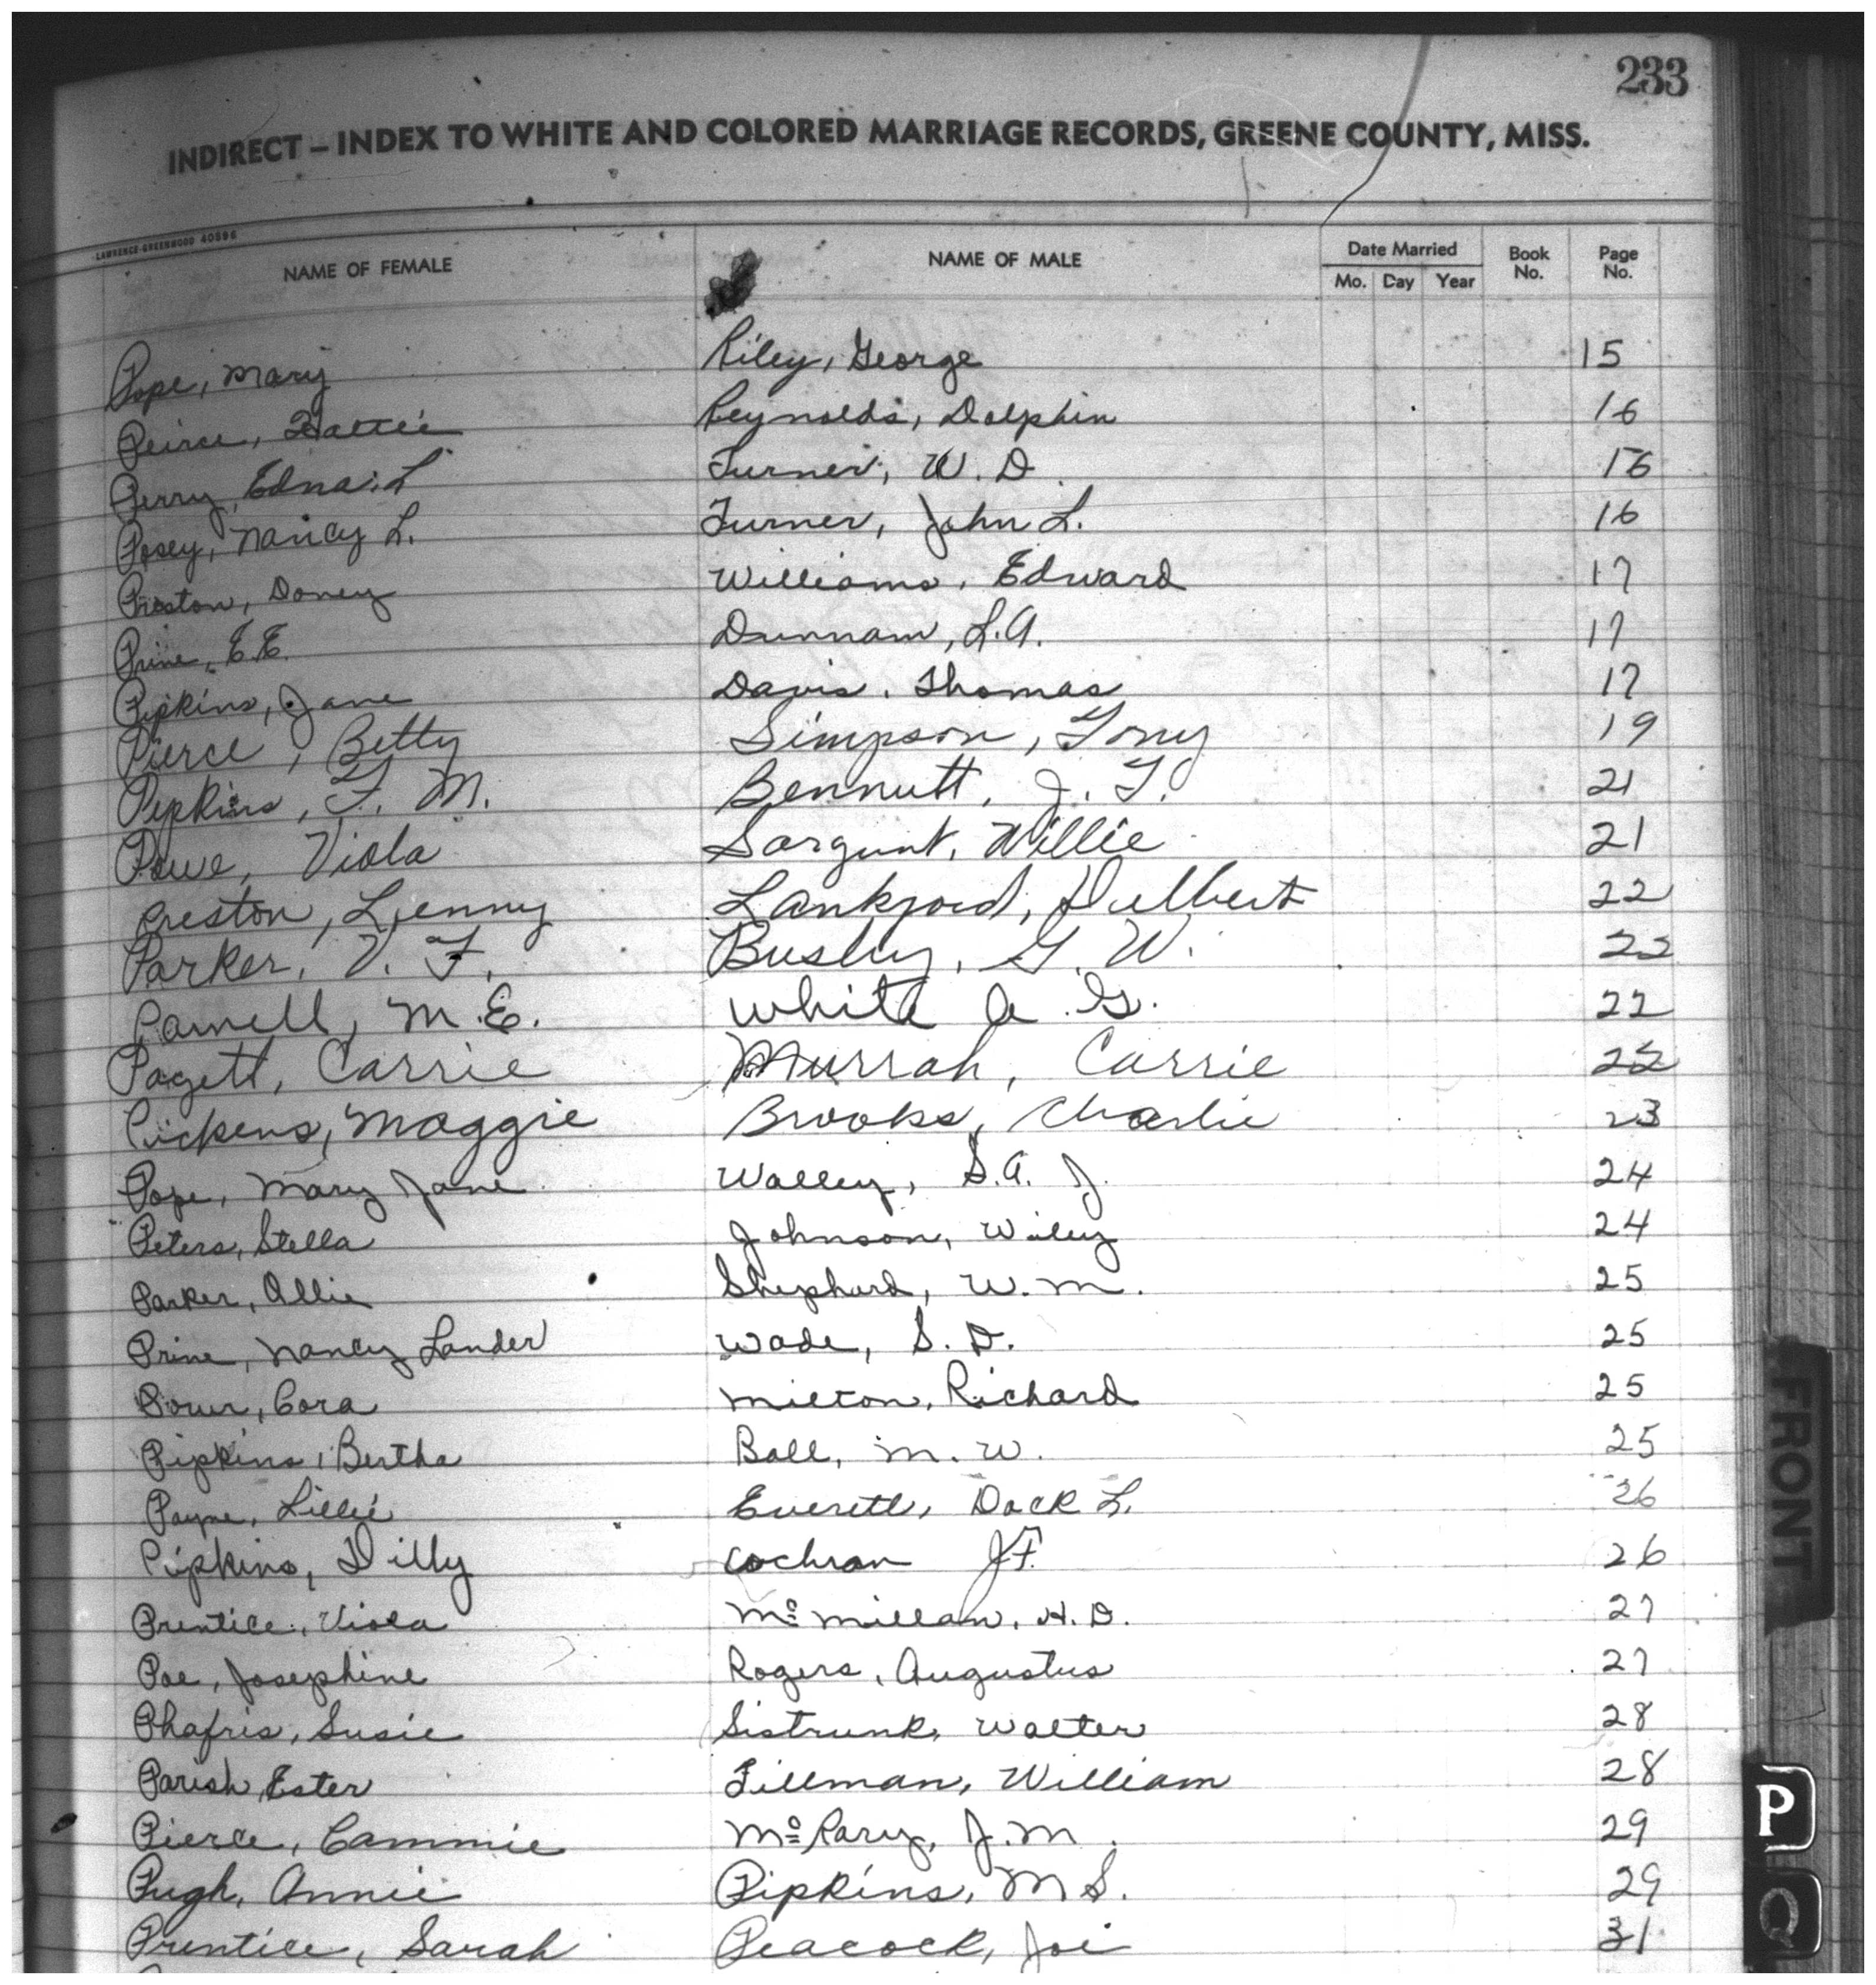 233
INDIRECT – INDEX TO WHITE AND COLORED MARRIAGE RECORDS, GREENE COUNTY, MISS.
LAWRENCE-GREENWOOD 40596
NAME OF FEMALE NAME OF MALE Date Married Book No. Page No.
Mo. Day Year
Pope, Mary Riley, George 15
Peirce, Hattie Reynolds, Dolphin 16
Perry, Edna L Turner, W. D. 16
Posey, Nancy L. Turner, John L. 16
Preston, Doney Williams, Edward 17
Prine, E.E. Dunnam, L.A. 17
Pipkins, Jane Davis, Thomas 17
Pierce, Betty Simpson, Tony 19
Pipkins, F. M. Bennett, J. T. 21
Powe, Viola Sargent, Willie 21
Preston, Lenny Lankford, Delbert 22
Parker, V. F. Busby, G. W. 22
Parnell, M.E. White A. G. 22
Pagett, Carrie Murrah, Carrie 22
Pickens, Maggie Brooks, Charlie 23
Pope, Mary Jane Walley, S.A. J. 24
Peters, Stella Johnson, Wiley 24
Parker, Ollie Shephard, W. M. 25
Prine, Nancy Lander Wade, S. D. 25
Power, Cora Milton, Richard 25
Pipkins, Bertha Ball, M. W. 25
Payne, Lillie Everett, Dock L. 26
Pipkins, Dilly Cochran J.F. 26
Prentice, Viola McMillan, H. D. 27
Poe, Josephine Rogers, Augustus 27
Phafris, Susie Sistrunk, Walter 28
Parish, Ester Tillman, William 28
Pierce, Cammie McRary, J. M. 29
Pugh, Annie Pipkins, M S. 29
Prentice, Sarah Peacock, Joe 31
FRONT
P
Q